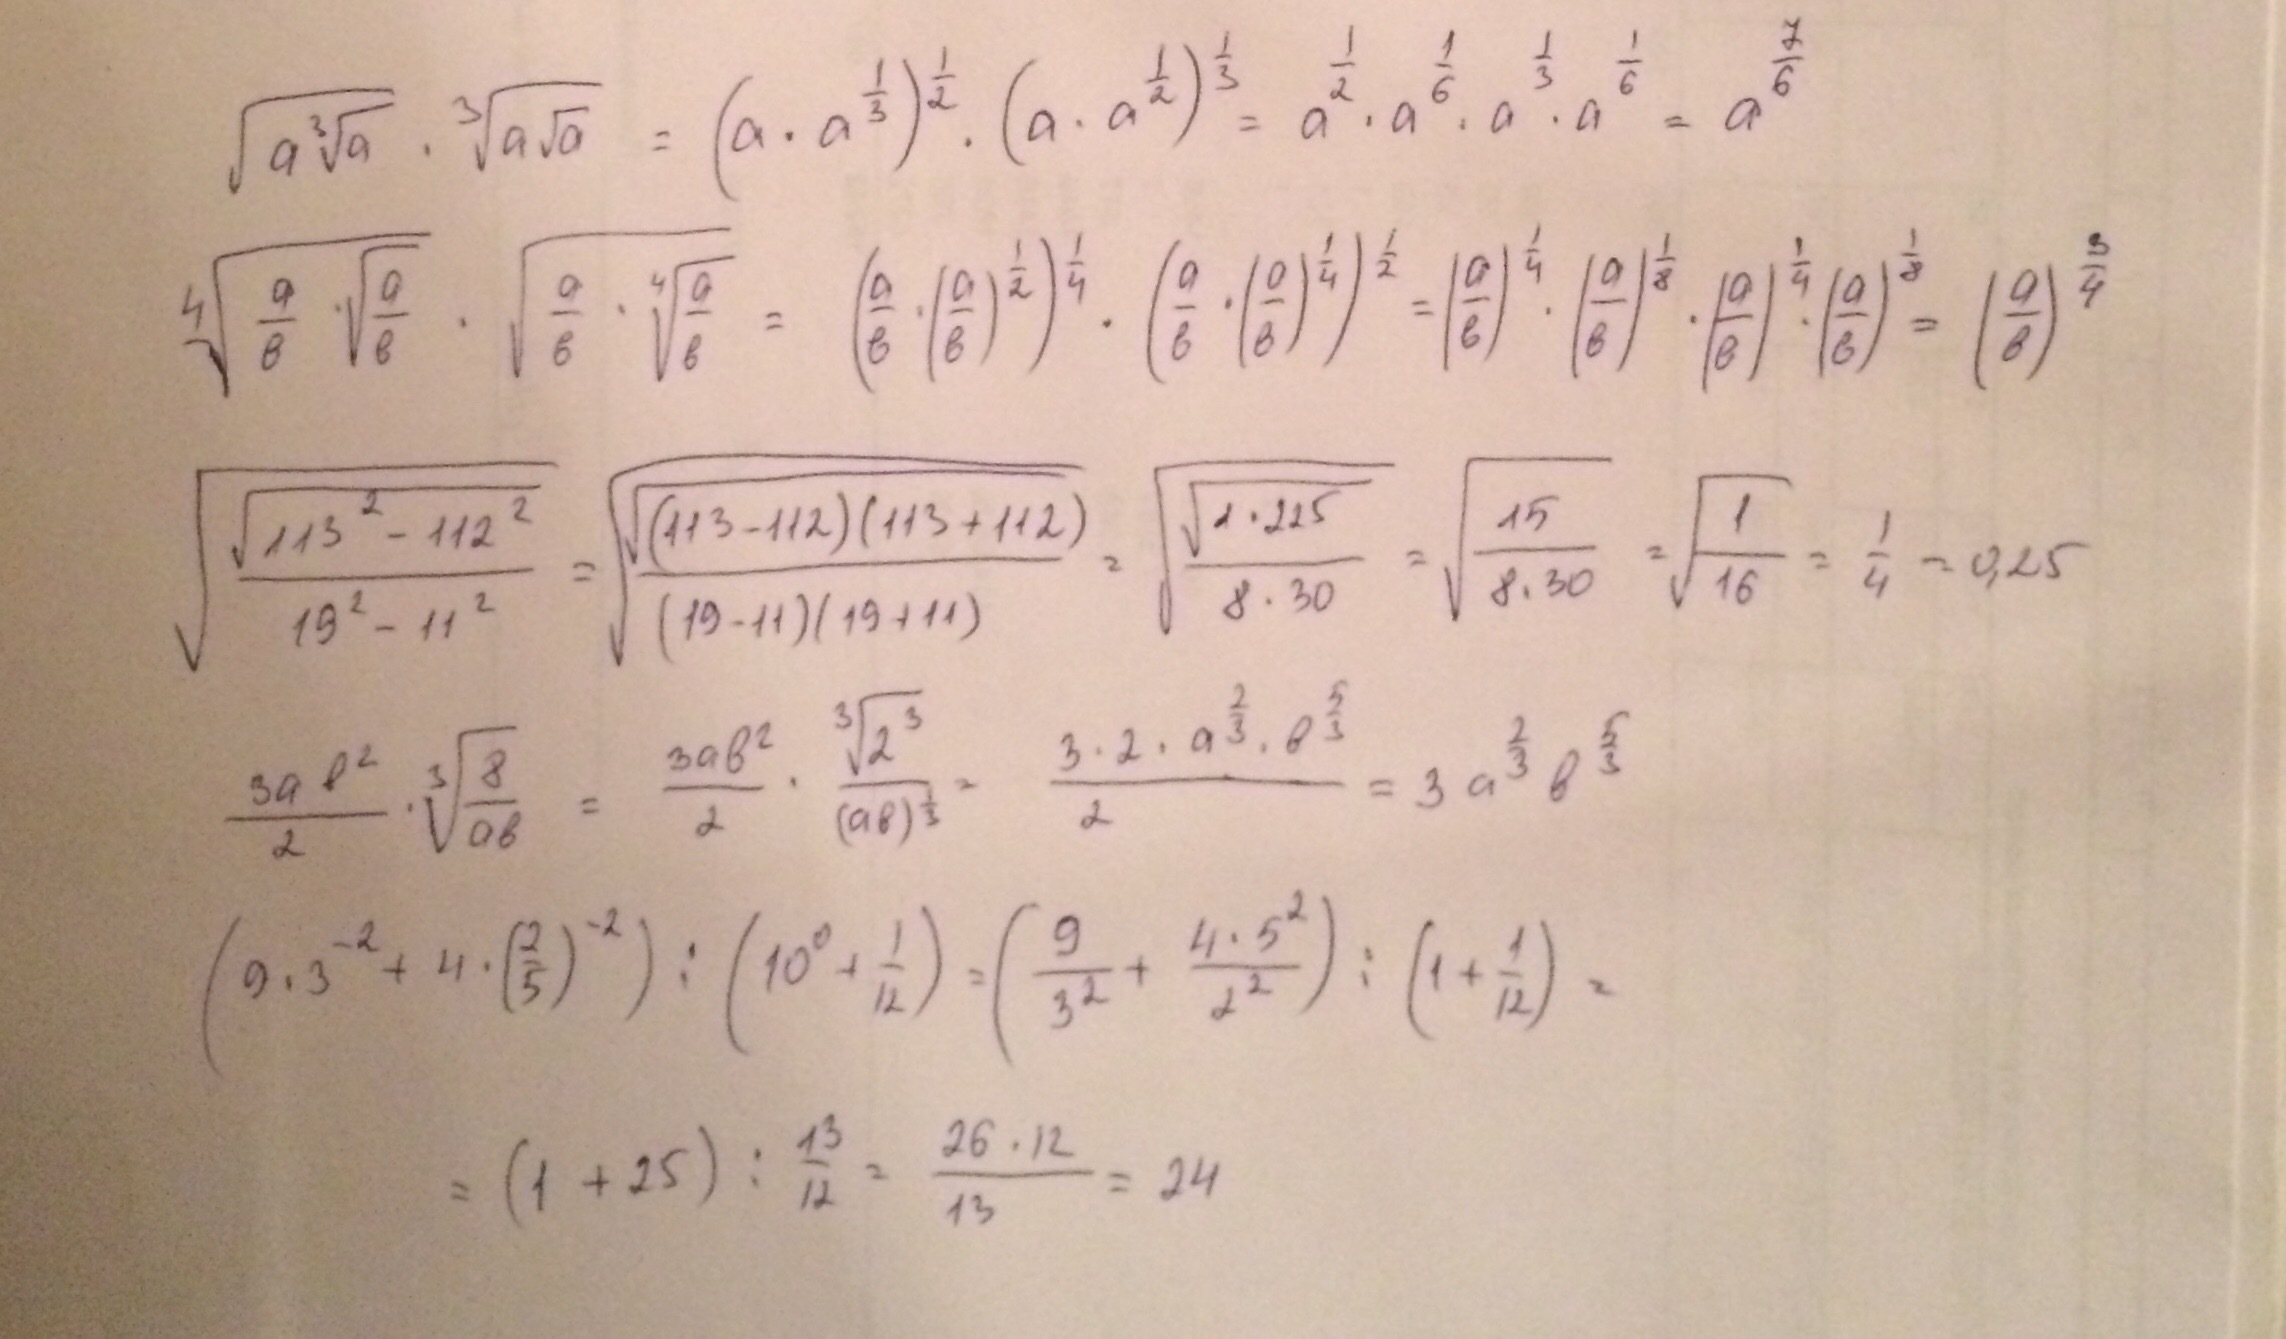 √(a∛a) · ∛(a√a) = (a · a^(1/3))^(1/2) · (a · a^(1/2))^(1/3) = a^(1/2) · a^(1/6) · a^(1/3) · a^(1/6) = a^(7/6)
∜(a/в · √(a/в)) · √(a/в · ∜(a/в)) = (a/в · (a/в)^(1/2))^(1/4) · (a/в · (a/в)^(1/4))^(1/2) = (a/в)^(1/4) · (a/в)^(1/8) · (a/в)^(1/4) · (a/в)^(1/8) = (a/в)^(3/4)
√(√(113² - 112²)/(19² - 11²)) = √(√((113-112)(113+112))/((19-11)(19+11))) = √(√(1·225)/(8·30)) = √(15/(8·30)) = √(1/16) = 1/4 = 0,25
3aв²/2 · ∛(8/aв) = 3aв²/2 · ∛(2³)/(aв)^(1/3) = (3·2·a^(2/3)·в^(5/3))/2 = 3a^(2/3)в^(5/3)
(9·3⁻² + 4·(2/5)⁻²) : (10⁰ + 1/12) = (9/3² + 4·5²/2²) : (1 + 1/12) =
= (1 + 25) : 13/12 = 26·12/13 = 24